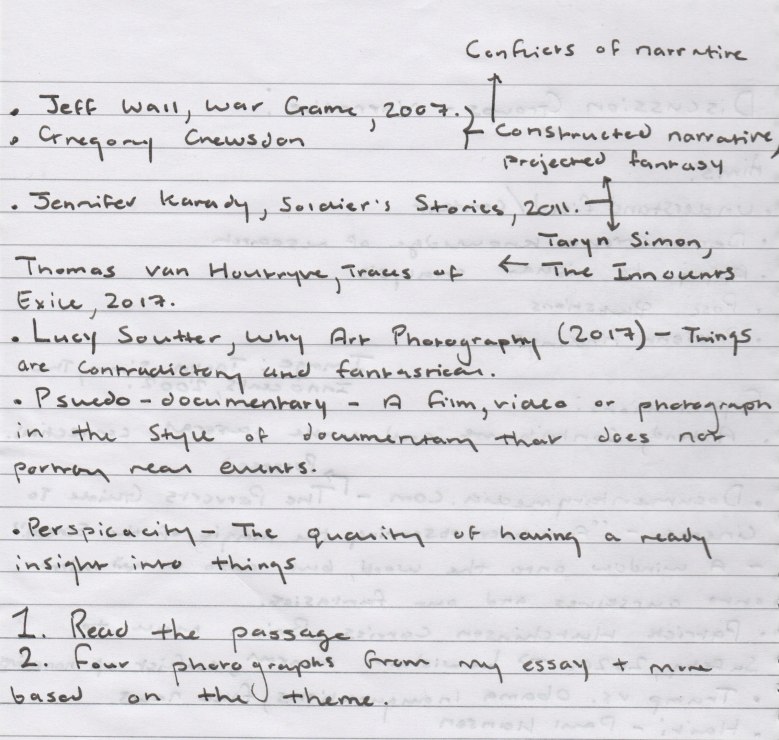 Conflicts of narrative
• Jeff Wall, War Game, 2007.
• Gregory Crewsdon
Constructed narrative,
projected fantasy
• Jennifer Karady, Soldier's Stories, 2011.
Taryn Simon,
Thomas van Houtryve, Traces of ← The Innocents
Exile, 2017.
• Lucy Soutter, Why Art Photography (2017) – Things
are contradictory and fantastical.
• Psuedo-documentary – A film, video or photograph
in the style of documentary that does not
portray real events.
• Perspicacity – The quality of having a ready
insight into things
1. Read the passage
2. Four photographs from my essay + more
based on the theme.